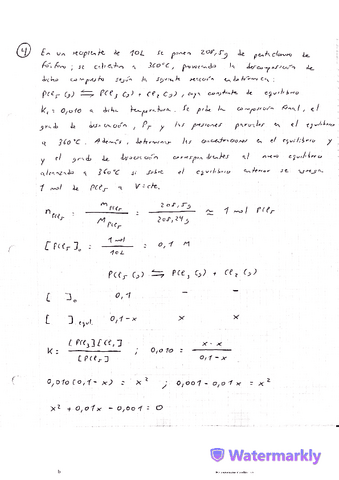 ④ En un recipiente de 10L se ponen 208,5g de pentacloruro de
fósforo; se calienta a 360°C, provocando la descomposición de
dicho compuesto según la siguiente reacción endotérmica:
PCl5 (g) ⇌ PCl3 (g) + Cl2 (g), cuya constante de equilibrio
Kc = 0,010 a dicha temperatura. Se pide la composición final, el
grado de disociación, PT y las presiones parciales en el equilibrio
a 360°C. Además, determinar las concentraciones en el equilibrio y
y el grado de disociación correspondientes al nuevo equilibrio
alcanzado a 360°C si sobre el equilibrio anterior se agrega
1 mol de PCl5 a V=cte.
nPCl5 = mPCl5 / MPCl5 = 208,5g / 208,24g ≃ 1 mol PCl5
[PCl5]o = 1 mol / 10L = 0,1 M
PCl5 (g) ⇌ PCl3 (g) + Cl2 (g)
[ ]o 0,1 - -
[ ]equil. 0,1-x x x
K = [PCl3][Cl2] / [PCl5] ; 0,010 = x·x / 0,1-x
0,010(0,1-x) = x² ; 0,001 - 0,01x = x²
x² + 0,01x - 0,001 = 0
Watermarkly